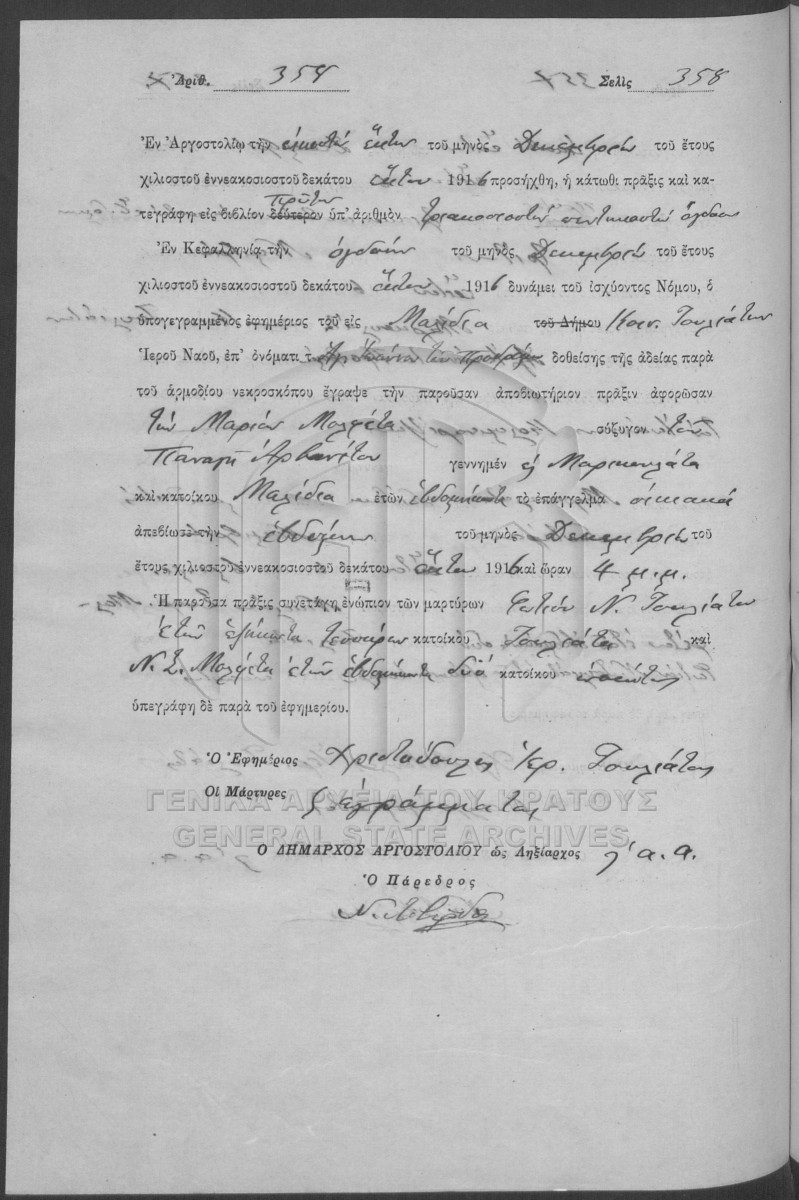 Ἀριθ. 358 Σελὶς 358
Ἐν Ἀργοστολίῳ τὴν εἰκοστὴν ἕκτην τοῦ μηνὸς Δεκεμβρίου τοῦ ἔτους
χιλιοστοῦ ἐννεακοσιοστοῦ δεκάτου ἕκτου 1916 προσήχθη, ἡ κάτωθι πρᾶξις καὶ κα-
πρῶτον
τεγράφη εἰς βιβλίον δεύτερον ὑπ' ἀριθμὸν τριακοσιοστὸν πεντηκοστὸν ὄγδοον
Ἐν Κεφαλληνίᾳ τὴν ὀγδόην τοῦ μηνὸς Δεκεμβρίου τοῦ ἔτους
χιλιοστοῦ ἐννεακοσιοστοῦ δεκάτου ἕκτου 1916 δυνάμει τοῦ ἰσχύοντος Νόμου, ὁ
ὑπογεγραμμένος ἐφημέριος τοῦ εἰς Μαλίδια τοῦ Δήμου Κοιν. Τουλιάτων
Ἱεροῦ Ναοῦ, ἐπ' ὀνόματι τ Ἁγ. Ἰωάννου τοῦ Προδρόμου δοθείσης τῆς ἀδείας παρὰ
τοῦ ἁρμοδίου νεκροσκόπου ἔγραψε τὴν παροῦσαν ἀποβιωτήριον πρᾶξιν ἀφορῶσαν
τὴν Μαρίαν Μολφέτα σύζυγον τοῦ
Παναγῆ Ἀρβανίτου γεννημέν Μαρκουλάτα
καὶ κατοίκου Μαλίδια ἐτῶν ἑβδομήκοντα τὸ ἐπάγγελμα οἰκιακά
ἀπεβίωσε τὴν ἑβδόμην τοῦ μηνὸς Δεκεμβρίου τοῦ
ἔτους χιλιοστοῦ ἐννεακοσιοστοῦ δεκάτου ἕκτου 1916 καὶ ὥραν 4 μ.μ.
Ἡ παροῦσα πρᾶξις συνετάγη ἐνώπιον τῶν μαρτύρων Φωτίου Ν. Τουλιάτου
ἐτῶν ἑξήκοντα τεσσάρων κατοίκου Τουλιάτα καὶ
Ν. Σ. Μολφέτα ἐτῶν ἑβδομήκοντα δύο κατοίκου
ὑπεγράφη δὲ παρὰ τοῦ ἐφημερίου.
Ὁ Ἐφημέριος Χριστόδουλος Ἱερ. Τουλιάτος
Οἱ Μάρτυρες ἀγράμματοι
ΓΕΝΙΚΑ ΑΡΧΕΙΑ ΤΟΥ ΚΡΑΤΟΥΣ
GENERAL STATE ARCHIVES
Ο ΔΗΜΑΡΧΟΣ ΑΡΓΟΣΤΟΛΙΟΥ ὡς Ληξίαρχος α.α.
Ὁ Πάρεδρος